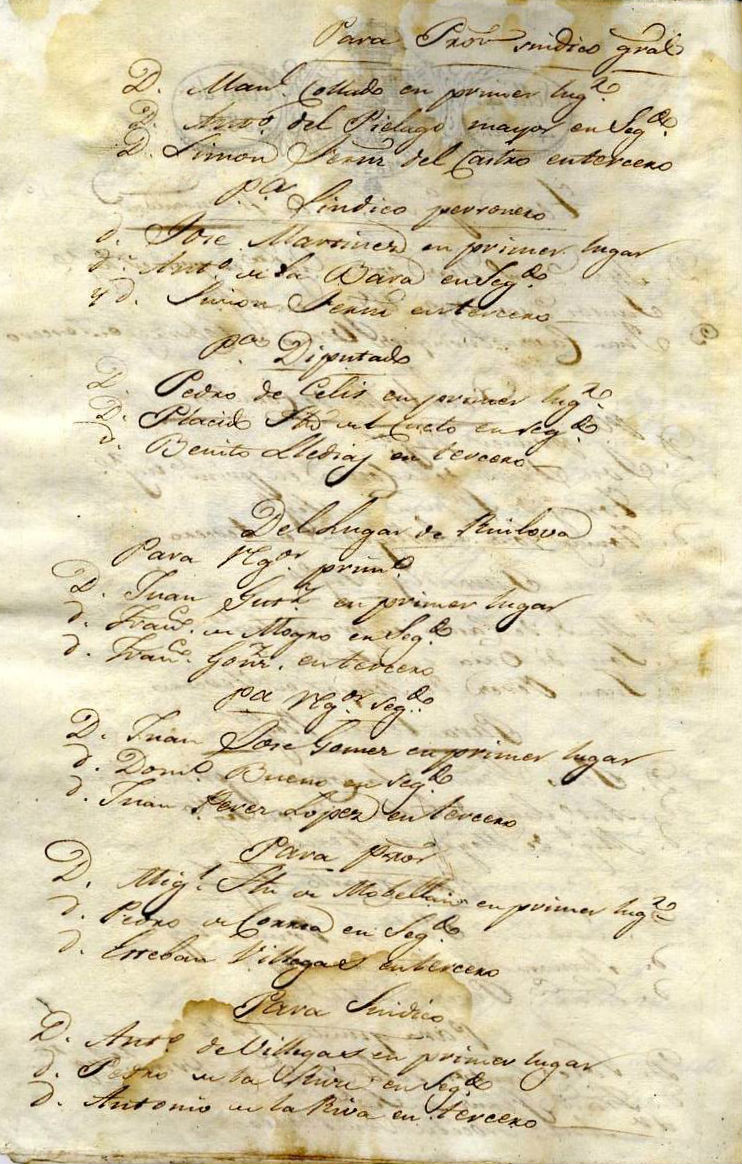 Para Pror sindico gral
D. Manl. Collado en primer lugr.
D. Anto. del Pielago mayor en Segdo.
D. Simon Fernz del Castro en tercero
Pa. Sindico personero
d. Jose Martinez en primer lugar
dn. Anto. de la Bara en Segdo.
y d. Simon Fernz en tercero
Pa. Diputado
D. Pedro de Celis en primer lugr.
D. Placido del Cueto en segdo.
d. Benito Lledias en tercero
Del Lugar de Ruilova
Para Rgor. primo.
D. Juan Gutz en primer lugar
d. Franco. de Mogro en Segdo.
d. Franco. Gonz. en tercero
pa Rgor. segdo.
D. Juan Jose Gomez en primer lugar
d. Domo. Bueno en segdo.
d. Juan Perez Lopez en tercero
Para Pror
D. Migl. de Mobellan en primer lugr.
d. Pedro de Correa en Segdo.
d. Esteban Villegas en tercero
Para Sindico
D. Anto. de Villegas en primer lugar
d. Pedro de la en Segdo
d. Antonio de la Riva en tercero